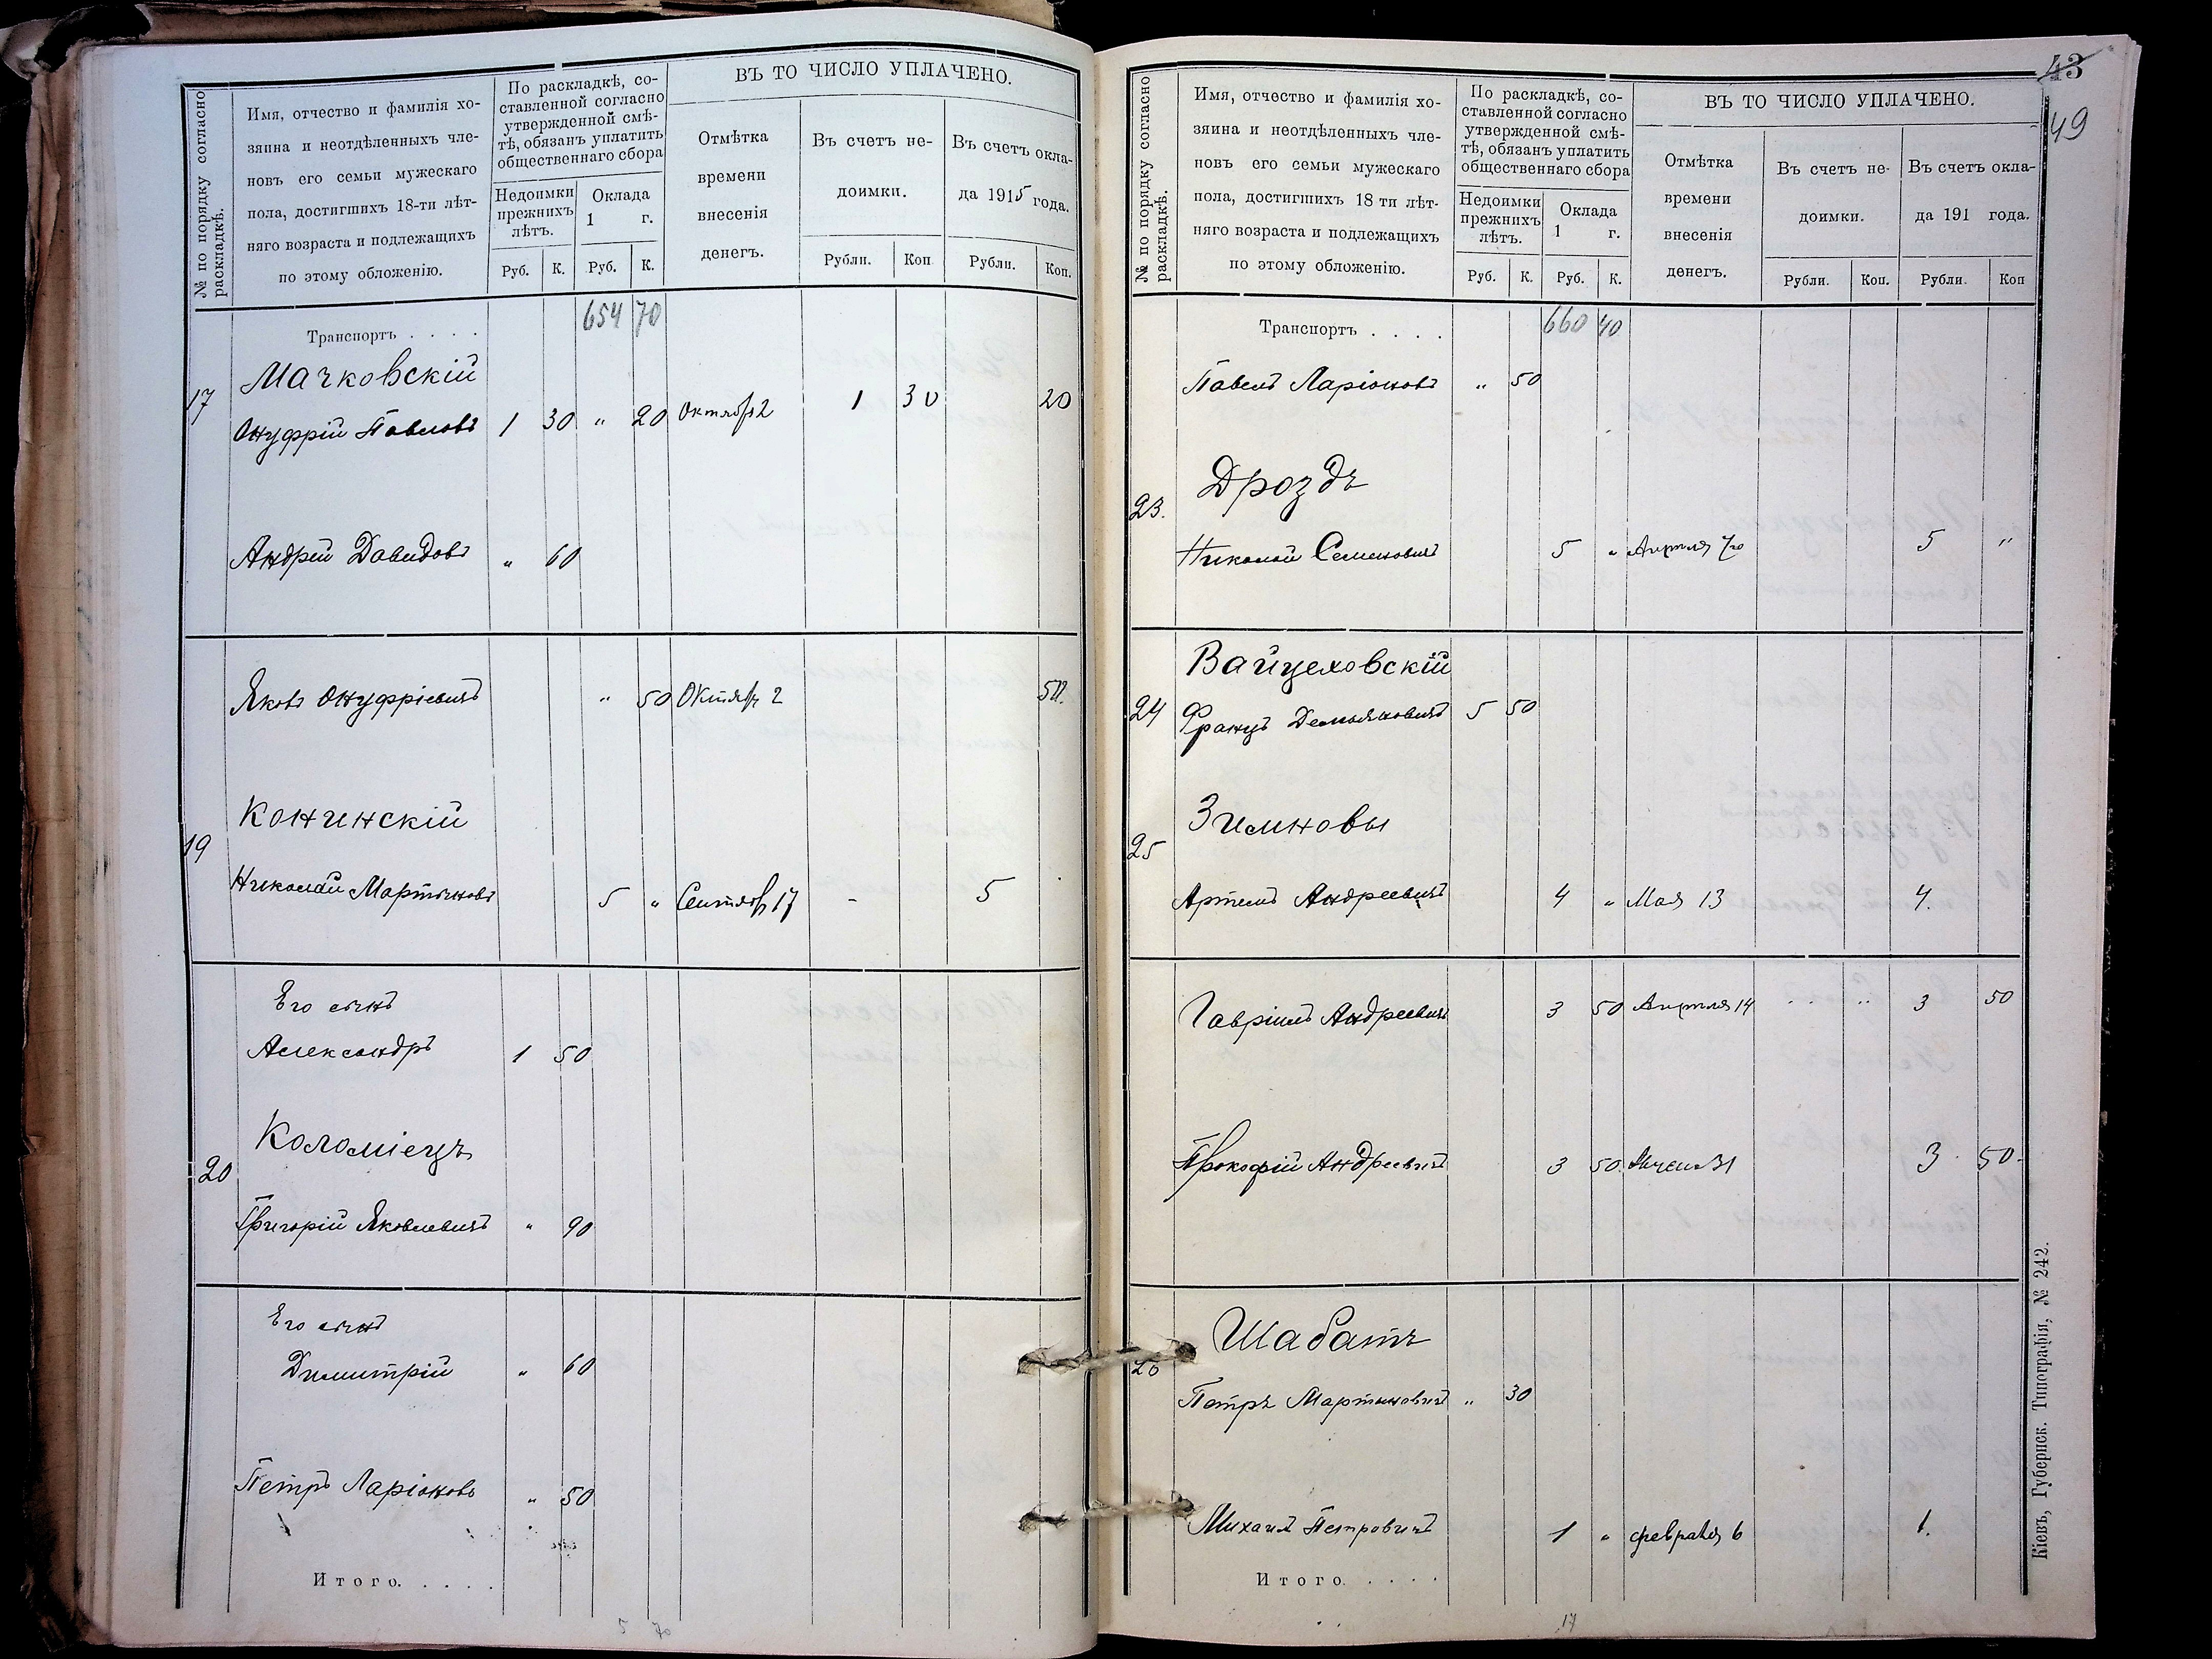 ВЪ ТО ЧИСЛО УПЛАЧЕНО.
№ по порядку согласно
раскладкѣ.
Имя, отчество и фамилія хо-
зяина и неотдѣленныхъ чле-
новъ его семьи мужескаго
пола, достигшихъ 18-ти лѣт-
няго возраста и подлежащихъ
по этому обложенію.
По раскладкѣ, со-
ставленной согласно
утвержденной смѣ-
тѣ, обязанъ уплатить
общественнаго сбора
Недоимки
прежнихъ
лѣтъ.
Оклада
1 г.
Отмѣтка
времени
внесенія
денегъ.
Въ счетъ не-
доимки.
Въ счетъ окла-
да 1915 года.
Руб. К. Руб. К. Рубли. Коп Рубли. Коп.
Транспортъ . . . . 654 70
Мачковскій
17 Онуфрій Павловъ 1 30 " 20 Октябр 2 1 30 20
Андрей Давидовъ " 60
Яковъ Онуфріевичъ " 50 Октябр 2 50.
Конинскій
19
Николай Мартыновъ 5 " Сентябр 17 - 5
Его сынъ
Александръ 1 50
Коломіецъ
20
Григорій Яковлевичъ " 90
Его сынъ
Димитрій " 60
Петръ Ларіоновъ " 50
Итого. . . . .
5 70
43
49
№ по порядку согласно
раскладкѣ.
Имя, отчество и фамилія хо-
зяина и неотдѣленныхъ чле-
новъ его семьи мужескаго
пола, достигшихъ 18 ти лѣт-
няго возраста и подлежащихъ
по этому обложенію.
По раскладкѣ, со-
ставленной согласно
утвержденной смѣ-
тѣ, обязанъ уплатить
общественнаго сбора
Недоимки
прежнихъ
лѣтъ.
Оклада
1 г.
ВЪ ТО ЧИСЛО УПЛАЧЕНО.
Отмѣтка
времени
внесенія
денегъ.
Въ счетъ не-
доимки.
Въ счетъ окла-
да 191 года.
Руб. К. Руб. К. Рубли. Коп. Рубли. Коп
Транспортъ . . . . 660 40
Павелъ Ларіоновъ " 50
Дроздъ
23.
Николай Семеновичъ 5 " Апреля 5 "
Вайцеховскій
24 Францъ Демьяновичъ 5 50
Зимновы
25
Артемъ Андреевичъ 4 " Мая 13 4.
Гавріилъ Андреевичъ 3 50 Апреля 14 " " 3 50
Прокофій Андреевичъ 3 50 31 3 50-
Шабатъ
26
Петръ Мартыновичъ " 30
Михаилъ Петровичъ 1 " февраля 6 1.
Итого. . . . .
17
Кіевъ, Губернск. Типографія, № 242.